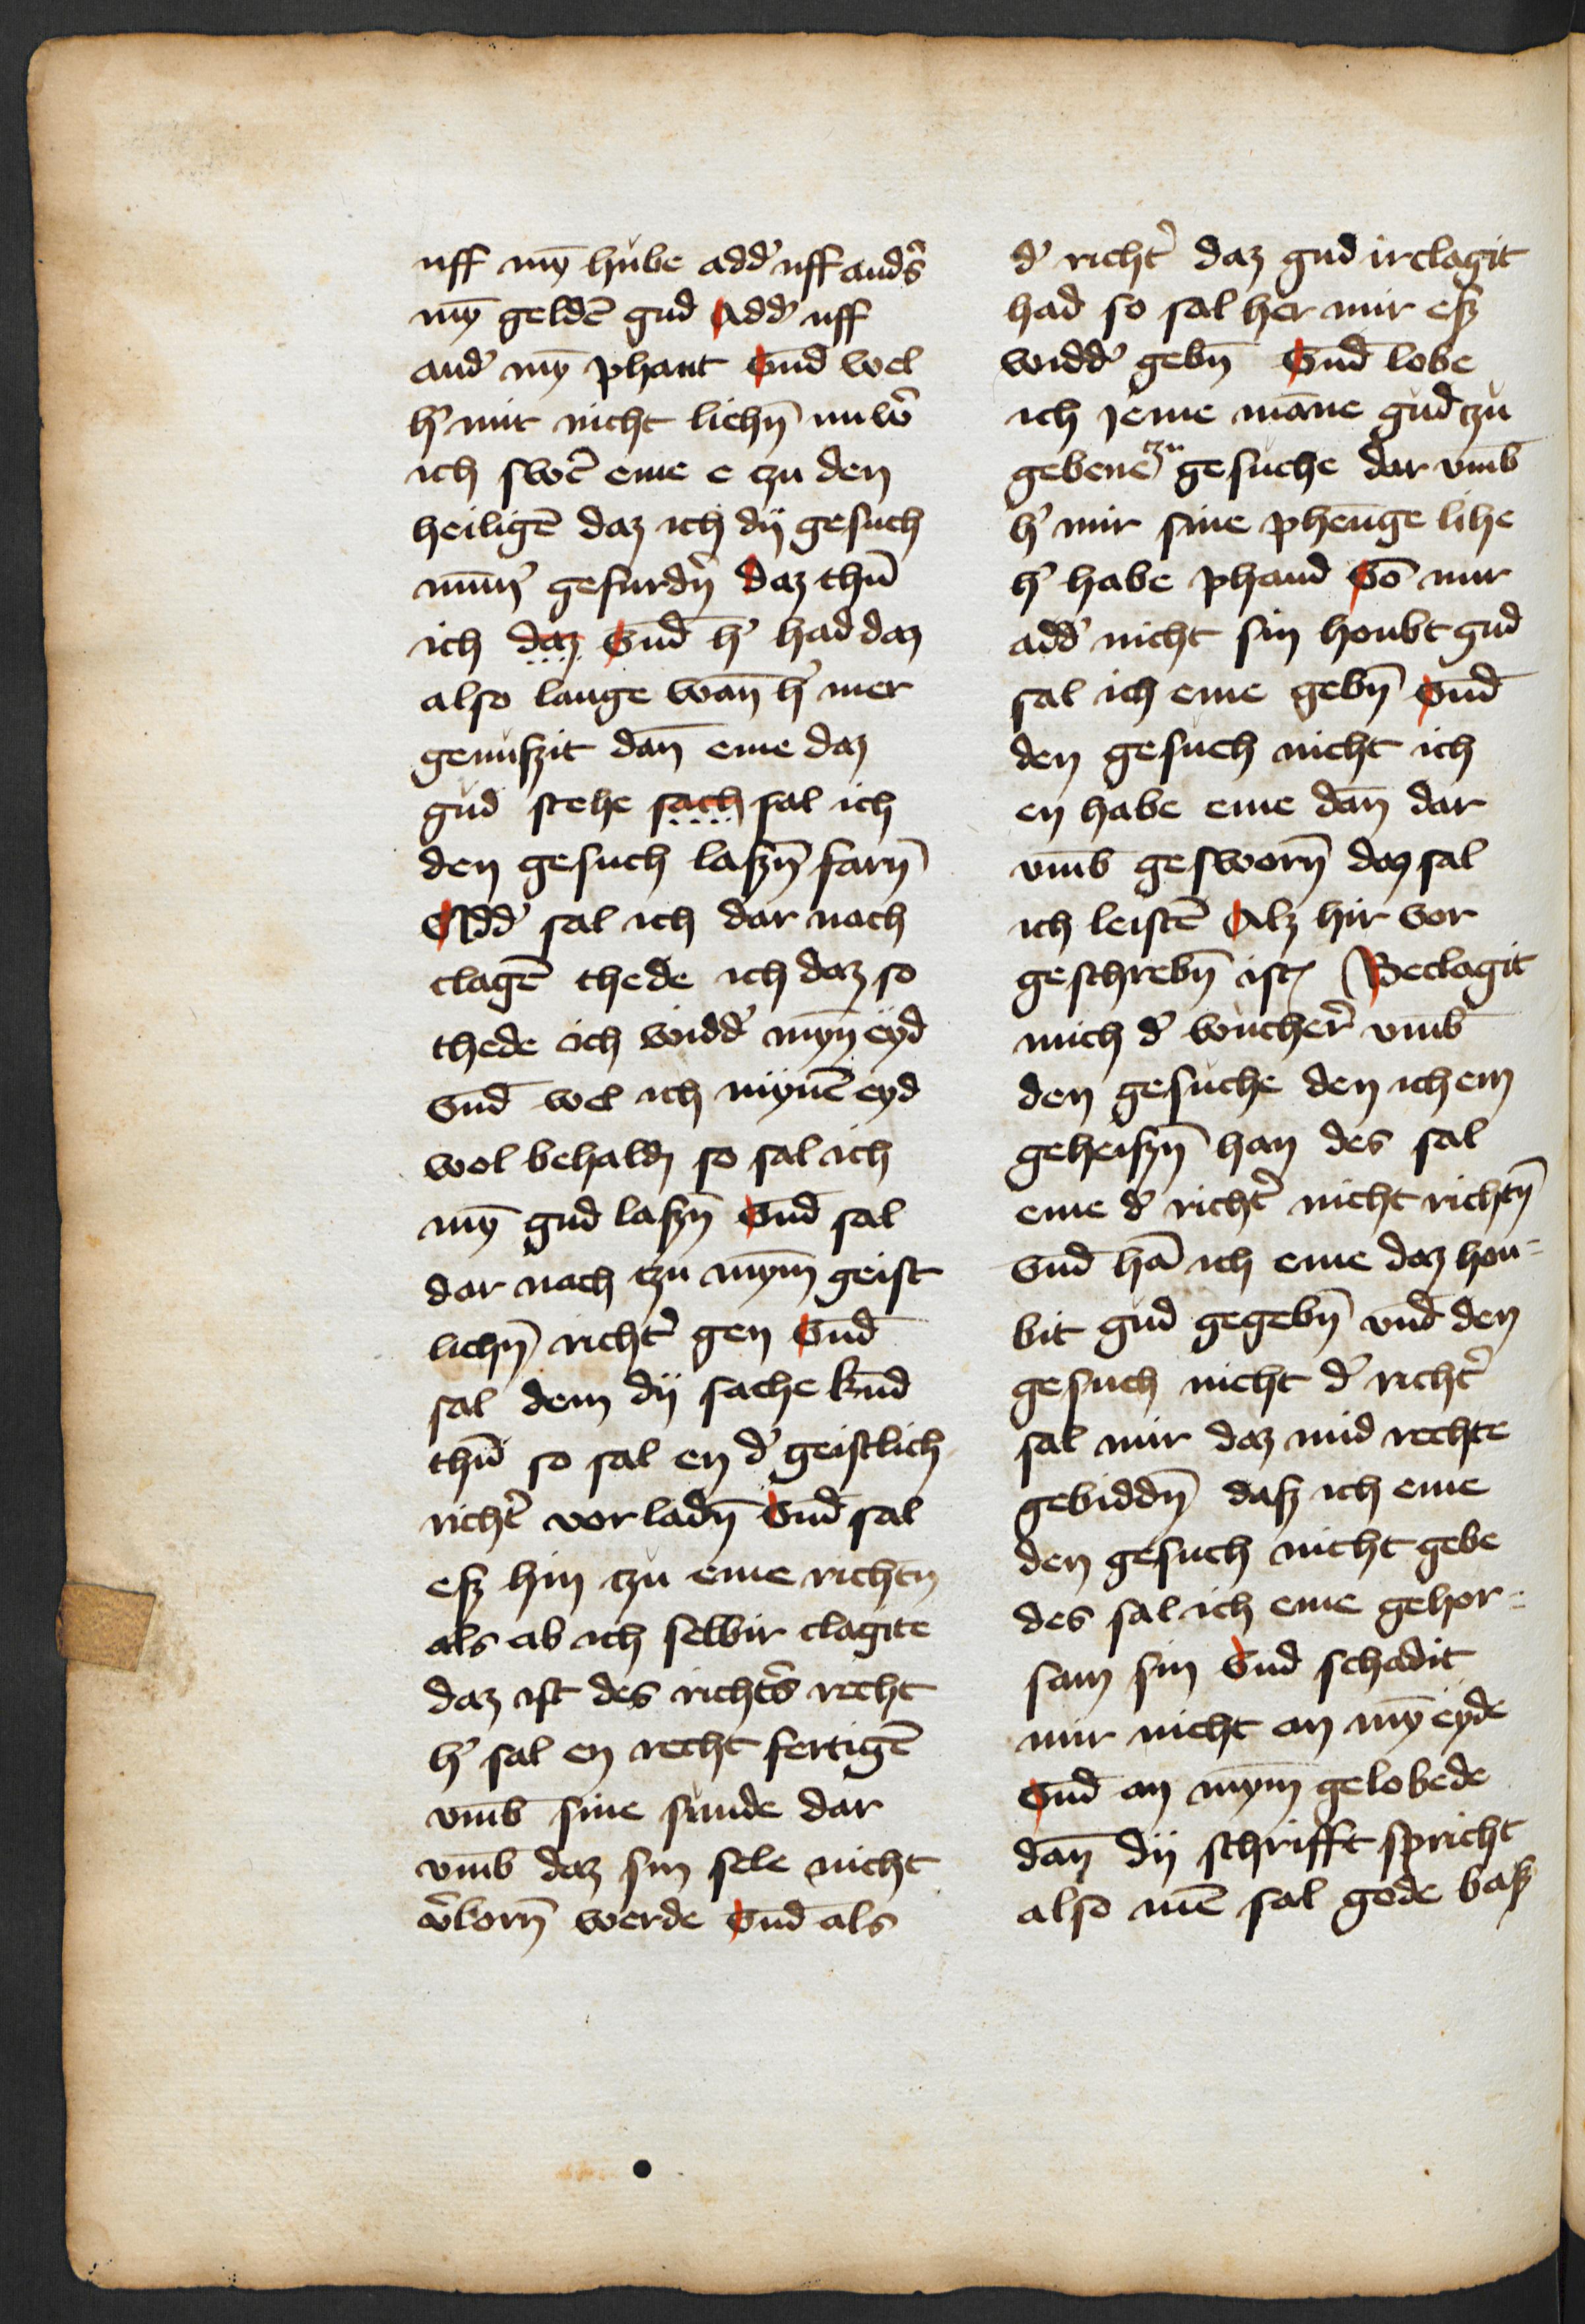 uff mȳ hube adď uff anďs
mȳ geldē gud Adď uff
anď mȳ phant Vnd̄ wel
h' mir nicht lichn̄ nuw'
ich swē eme e czu den
heiligē daz ich dij gesuch
num̄' gefurdn̄ daz thū
ich daz Vnd̄ h' had daz
also lange wan̄ h' mer
genuszit dan̄ eme daz
gud stehe sach sal ich
den gesuch laszn̄ farn̄
Adď sal ich dar nach
clagē thede ich daz so
thede ich widď myn̄ eyd
Vnd̄ wel ich mynē eyd
wol behaldn so sal ich
mȳ gud laszn̄ Vnd̄ sal
dar nach czu mym̄ geist
lichn̄ richt' gen Vnd̄
sal dem dij sache kund
thū so sal en d' geistlich
richt' vor ladn̄ Vnd̄ sal
esz hin czu eme richtn̄
als ab ich selbir clagite
daz ist des richt's recht
h' sal en recht fertigē
vm̄b sine sunde dar
vm̄b daz sin sele nicht
v'lorn̄ werde Vnd̄ als
d' richt' daz gud irclagit
had so sal her mir esz
widď gebn̄ Vnd̄ lobe
ich jeme māne gud czu
gebene czu gesuche dar vm̄b
h' mir sine phen̄ge lihe
h' habe phand Vō mir
adď nicht sin houbt gud
sal ich eme gebn̄ Vnd̄
den gesuch nicht ich
en habe eme dan̄ dar
vm̄b gesworn̄ daz sal
ich leistē Alz hir vor
geschrebn̄ ist Beclagit
mich d' wucher' vm̄b
den gesuche den ich em
geheiszn̄ han des sal
eme d' richt' nicht richtn̄
Vnd̄ hā ich eme daz hou-
bit gud gegebn̄ vnd̄ den
gesuch nicht d' richt'
sal mir daz mid rechte
gebiddn̄ dasz ich eme
den gesuch nicht gebe
des sal ich eme gehor-
sam sin Vnd schadit
mir nicht an mȳ eyde
Vnd̄ an mym̄ gelobede
dan̄ dij schrifft spricht
also mē sal gode basz